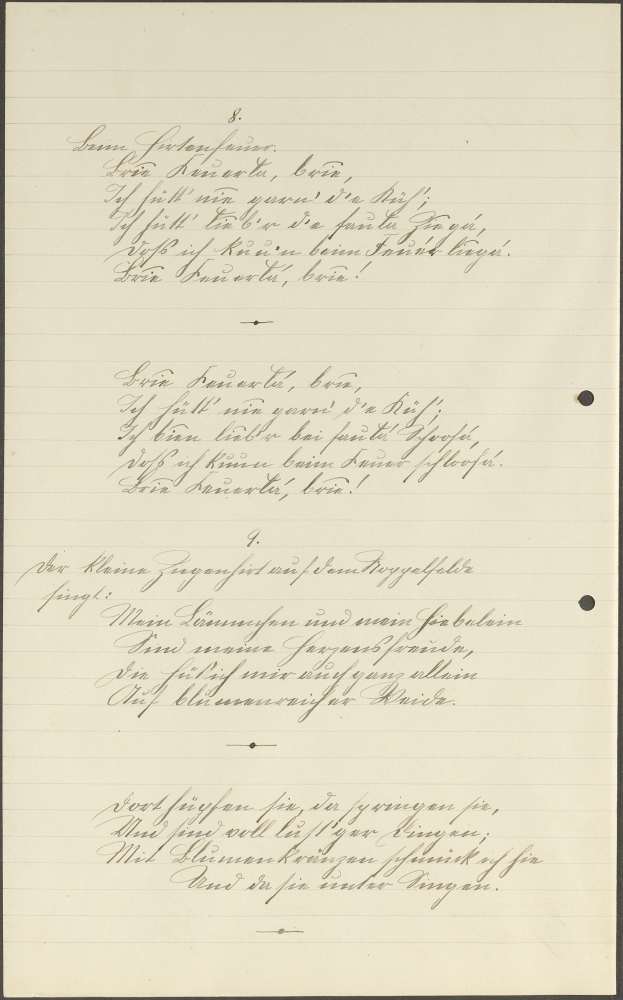 8.
Beim Hirtenfeuer.
Brie Feuerla, brie,
Ich hütt' nie garn' d'e Küh';
Ich hütt' lieb'r d'e faula Ziega,
Doß ich kuu'n beim Feuer liega.
Brie Feuerla, brie!
Brie Feuerla, brie,
Ich hütt' nie garn' d'e Küh';
Ich bien lieb'r bei faula Schoofa,
Doß ich kuun beim Feuer schloofa.
Brie Feuerla, brie!
9.
Der kleine Ziegenhirt auf dem Koppelfelde
singt:
Mein Lämmchen und mein
Sind meine Herzensfreude,
Die hüt' ich mir auch ganz allein
Auf blumenreicher Weide.
Dort hüpfen sie, da springen sie,
Und sind voll lust'ger Dingen;
Mit Blumenkränzen schmück ich sie
Und da sie unter Singen.